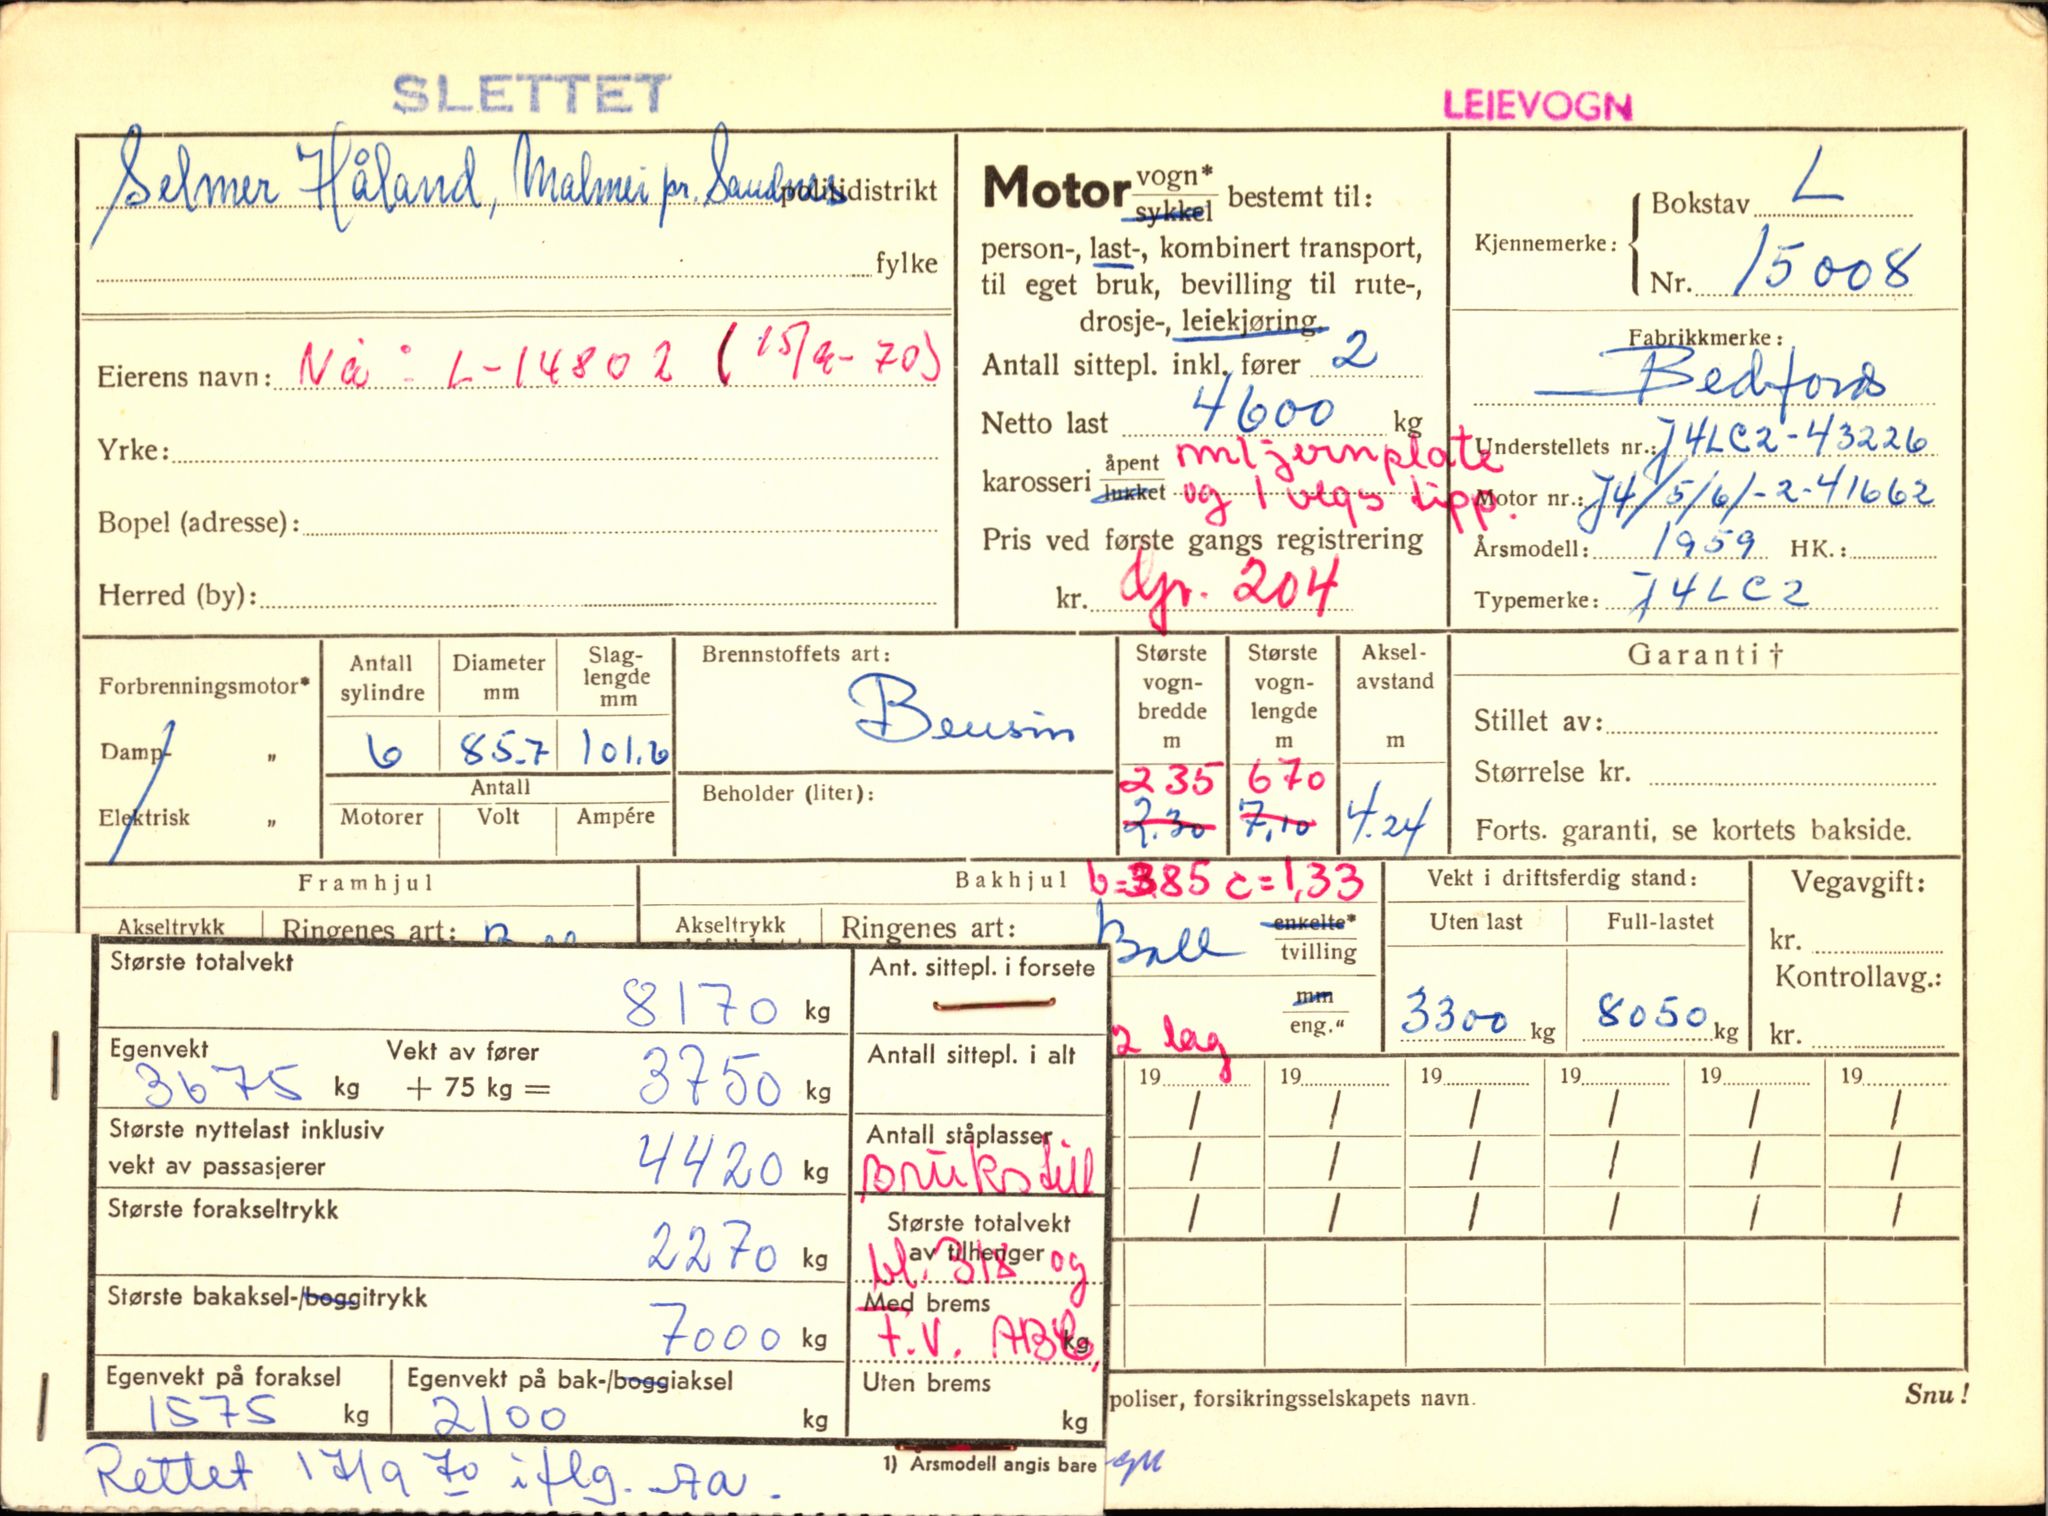 SLETTET
LEIEVOGN
Selmer Håland, Malmei pr. Sandnes politidistrikt
fylke
Eierens navn: Nå: L-14802 (15/9-70)
Yrke:
Bopel (adresse):
Herred (by):
Motor vogn* sykkel bestemt til:
person-, last-, kombinert transport,
til eget bruk, bevilling til rute-,
drosje-, leiekjøring.
Antall sittepl. inkl. fører 2
Netto last 4600 kg
karosseri åpent lukket m/jernplate
og 1 vegs tipp.
Pris ved første gangs registrering
kr. Gr. 204
Kjennemerke: Bokstav L
Nr. 15008
Fabrikkmerke:
Bedford
Understellets nr.: J4LC2-43226
Motor nr.: J4/5/6/-2-41662
Årsmodell: 1959 HK.:
Typemerke: J4LC2
Forbrenningsmotor*
Damp- „
Elektrisk „
Antall sylindre
6
Diameter mm
85.7
Slaglengde mm
101.6
Antall
Motorer Volt Ampére
Brennstoffets art:
Bensin
Beholder (liter):
Største vogn-bredde m
235
2.30
Største vogn-lengde m
670
7,10
Aksel-avstand m
4.24
Garanti†
Stillet av:
Størrelse kr.
Forts. garanti, se kortets bakside.
Framhjul
Akseltrykk Ringenes art:
Bakhjul b=385 c=1,33
Akseltrykk Ringenes art: Ball enkelte* tvilling
mm eng."
2 lag
Vekt i driftsferdig stand:
Uten last Full-lastet
3300 kg 8050 kg
Vegavgift:
kr.
Kontrollavg.:
kr.
19 19 19 19 19 19
/ / / / / /
/ / / / / /
/ / / / / /
Største totalvekt
8170 kg
Egenvekt Vekt av fører
3675 kg + 75 kg = 3750 kg
Største nyttelast inklusiv
vekt av passasjerer 4420 kg
Største forakseltrykk
2270 kg
Største bakaksel-/boggitrykk
7000 kg
Egenvekt på foraksel
1575 kg
Egenvekt på bak-/boggiaksel
2100 kg
Ant. sittepl. i forsete
Antall sittepl. i alt
Antall ståplasser
Brukstill
Største totalvekt
av tilhenger
bl. 318 og
Med brems
T.V. ABC kg
Uten brems
kg
poliser, forsikringsselskapets navn.
Snu!
1) Årsmodell angis bare
Rettet 17/9 70 iflg. sta.